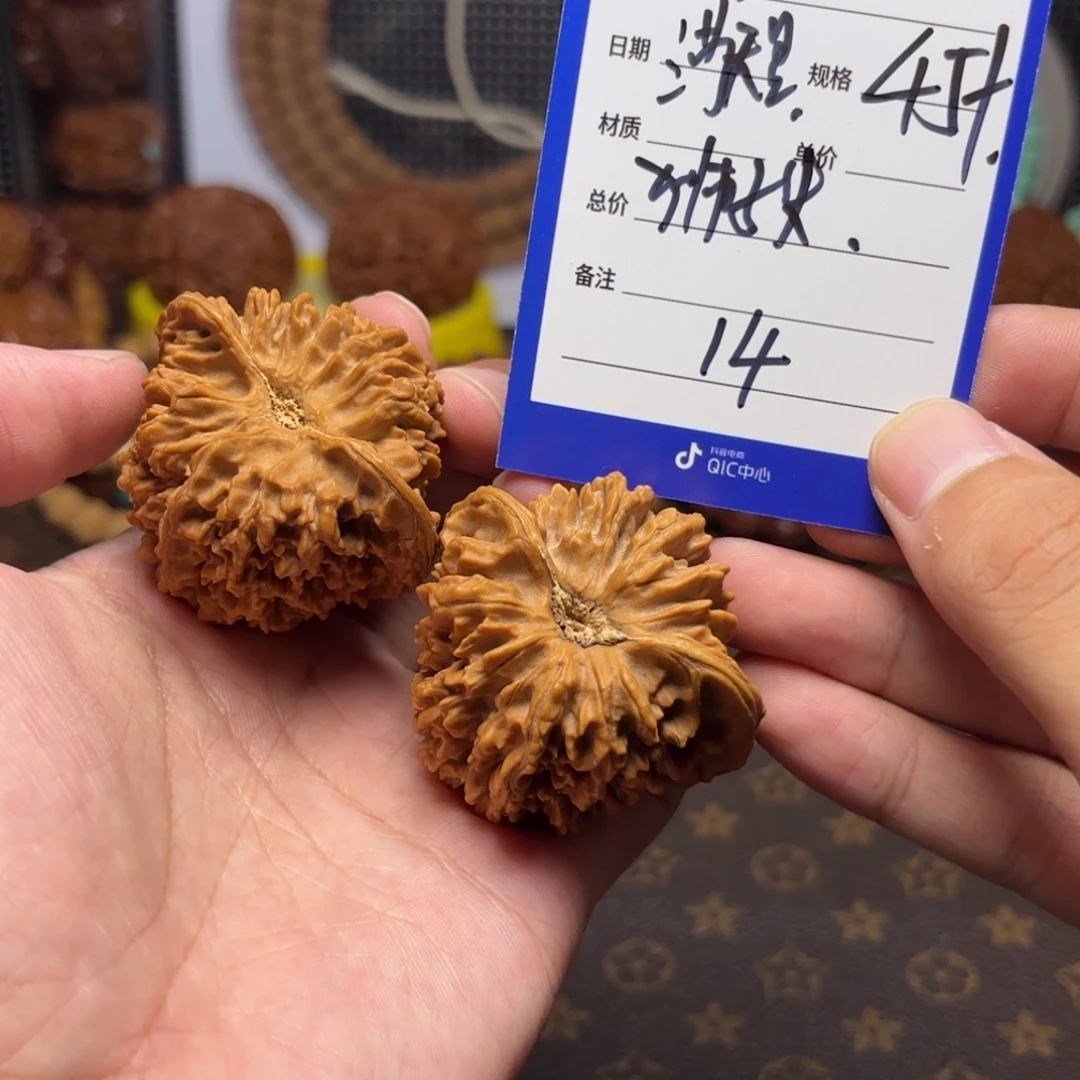 日期 满天星. 规格 45+.
材质 单价
总价
备注
14
抖音电商
QIC中心